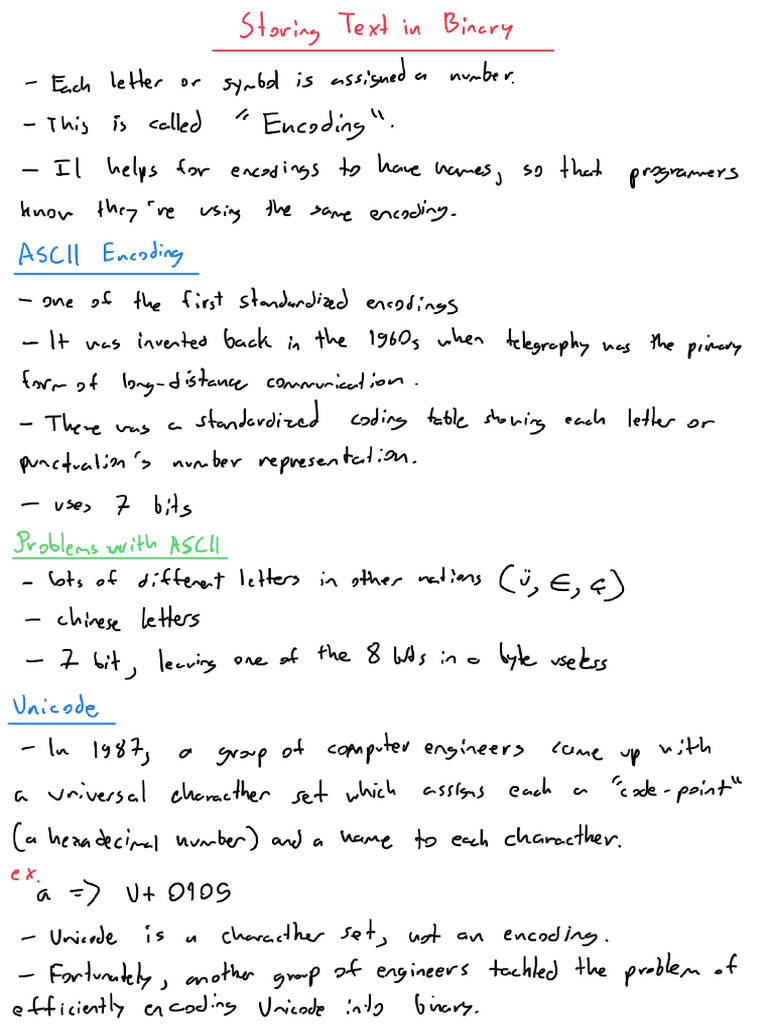 Storing Text in Binary
- Each letter or symbol is assigned a number.
- This is called "Encoding".
- It helps for encodings to have names, so that programmers
know they're using the same encoding.
ASCII Encoding
- one of the first standardized encodings
- It was invented back in the 1960s when telegraphy was the primary
form of long-distance communication.
- There was a standardized coding table showing each letter or
punctuation's number representation.
- uses 7 bits
Problems with ASCII
- lots of different letters in other nations (ü, ∈, ç)
- chinese letters
- 7 bit, leaving one of the 8 bits in a byte useless
Unicode
- In 1987, a group of computer engineers came up with
a universal characther set which assigns each a "code-point"
(a hexadecimal number) and a name to each characther.
ex.
a => U+ 0905
- Unicode is a characther set, not an encoding.
- Fortunately, another group of engineers tackled the problem of
efficiently encoding Unicode into binary.